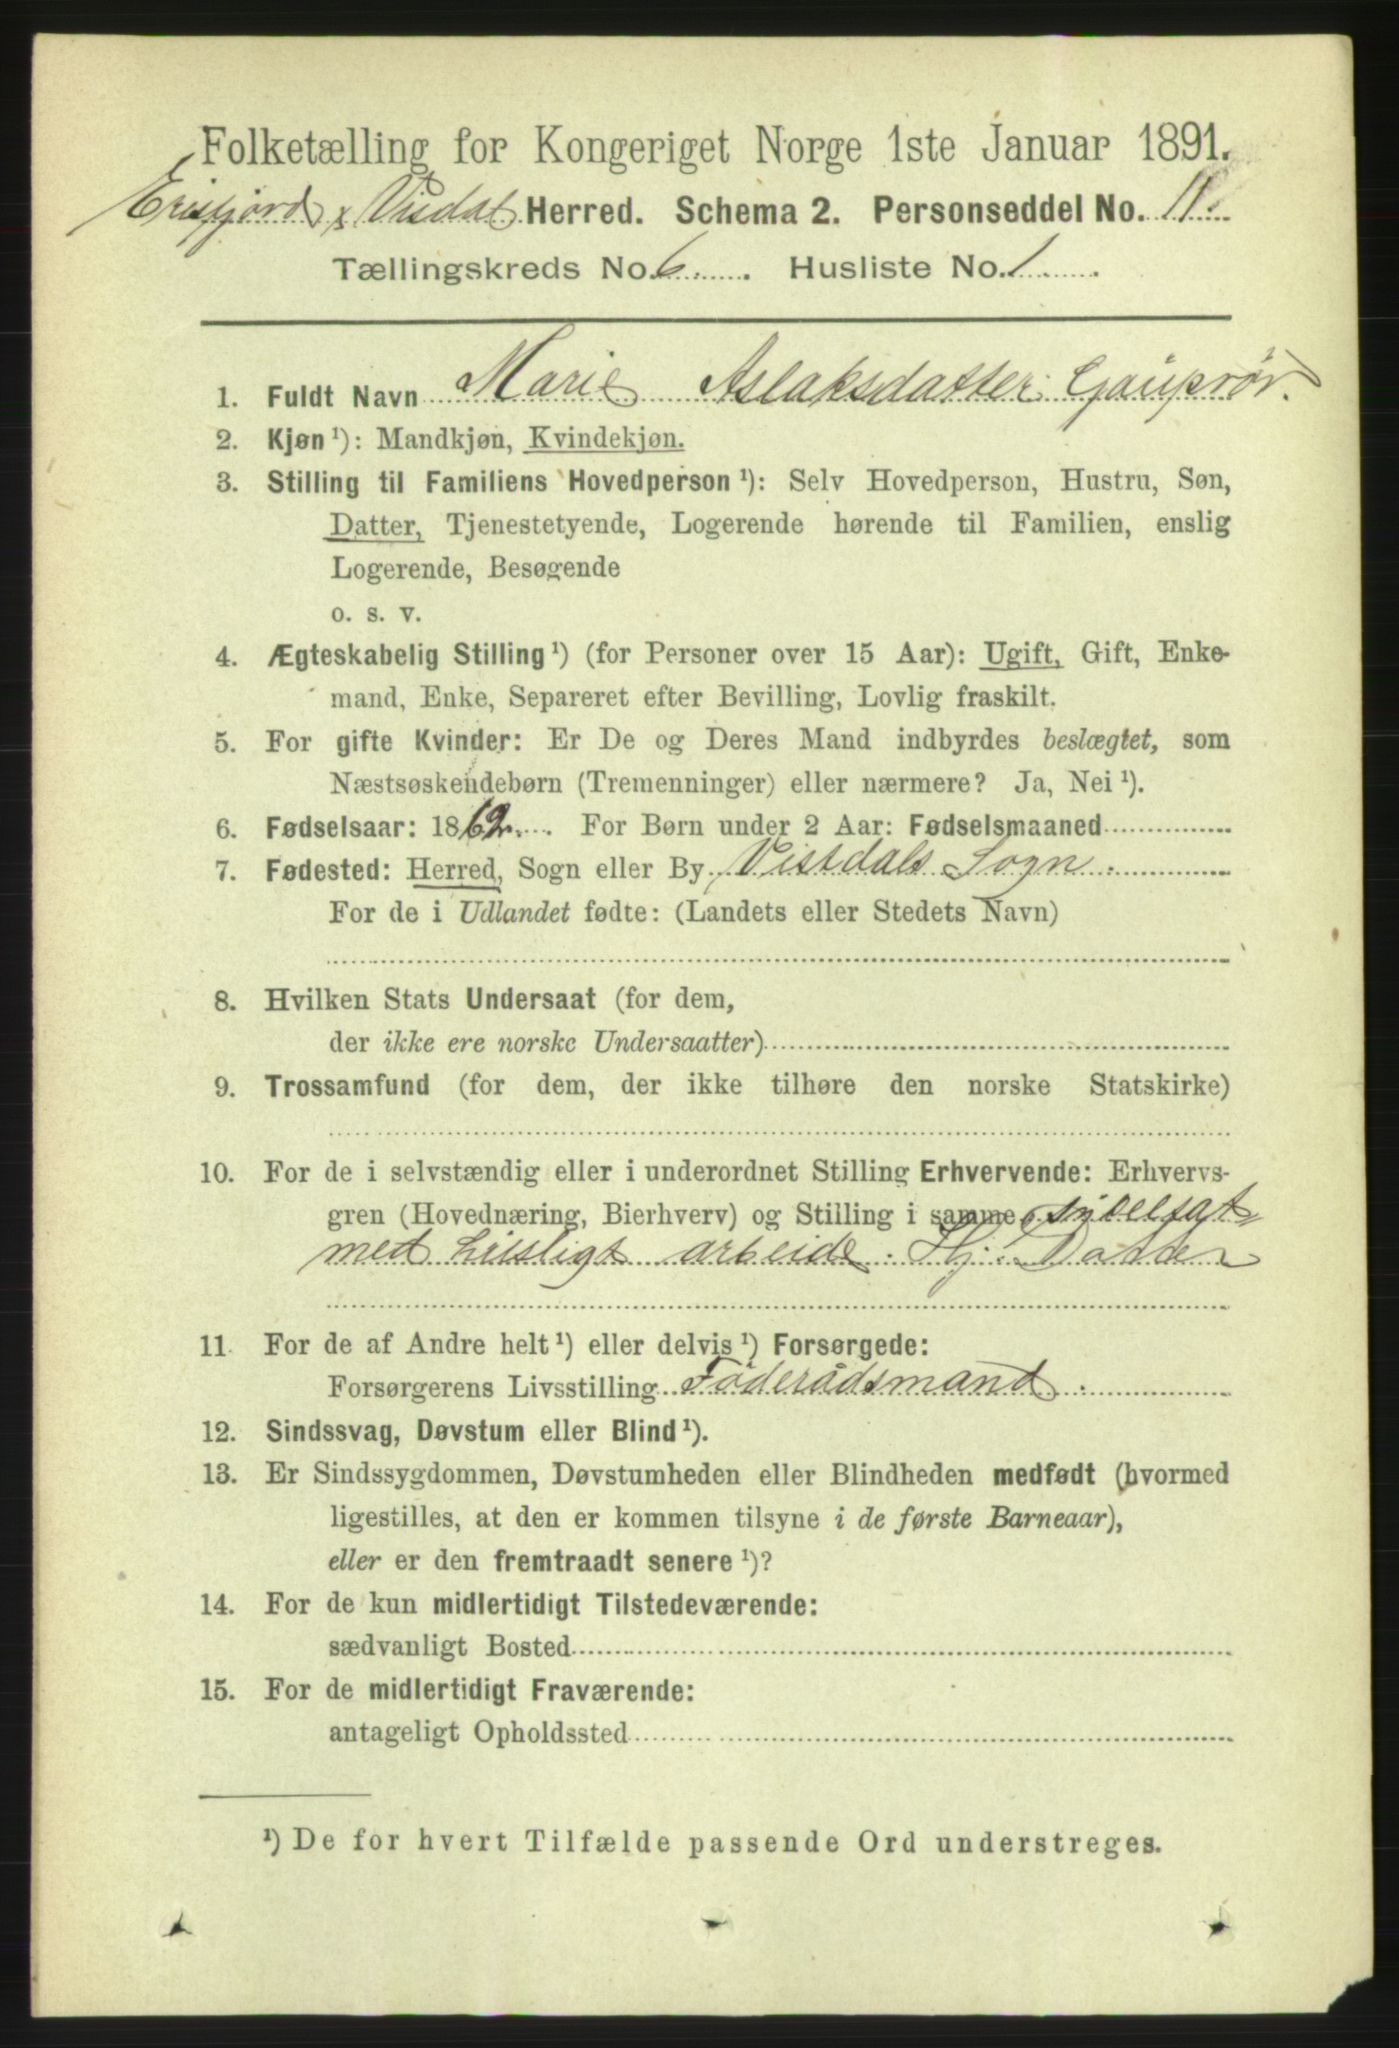 Folketælling for Kongeriget Norge 1ste Januar 1891.
Erisfjord & Visdal Herred. Schema 2. Personseddel No. 11.
Tællingskreds No. 6. Husliste No. 1
1. Fuldt Navn Marie Aslaksdatter Gauprør.
2. Kjøn ¹): Mandkjøn, Kvindekjøn.
3. Stilling til Familiens Hovedperson ¹): Selv Hovedperson, Hustru, Søn,
Datter, Tjenestetyende, Logerende hørende til Familien, enslig
Logerende, Besøgende
o. s. v.
4. Ægteskabelig Stilling ¹) (for Personer over 15 Aar): Ugift, Gift, Enke-
mand, Enke, Separeret efter Bevilling, Lovlig fraskilt.
5. For gifte Kvinder: Er De og Deres Mand indbyrdes beslægtet, som
Næstsøskendebørn (Tremenninger) eller nærmere? Ja, Nei ¹).
6. Fødselsaar: 1862. For Børn under 2 Aar: Fødselsmaaned
7. Fødested: Herred, Sogn eller By Vistdals Sogn.
For de i Udlandet fødte: (Landets eller Stedets Navn)
8. Hvilken Stats Undersaat (for dem,
der ikke ere norske Undersaatter)
9. Trossamfund (for dem, der ikke tilhøre den norske Statskirke)
10. For de i selvstændig eller i underordnet Stilling Erhvervende: Erhvervs-
gren (Hovednæring, Bierhverv) og Stilling i samme sysselsat
med husligt arbeide. Hj: Datter
11. For de af Andre helt ¹) eller delvis ¹) Forsørgede:
Forsørgerens Livsstilling Föderådsmand.
12. Sindssvag, Døvstum eller Blind ¹).
13. Er Sindssygdommen, Døvstumheden eller Blindheden medfødt (hvormed
ligestilles, at den er kommen tilsyne i de første Barneaar),
eller er den fremtraadt senere ¹)?
14. For de kun midlertidigt Tilstedeværende:
sædvanligt Bosted
15. For de midlertidigt Fraværende:
antageligt Opholdssted
¹) De for hvert Tilfælde passende Ord understreges.